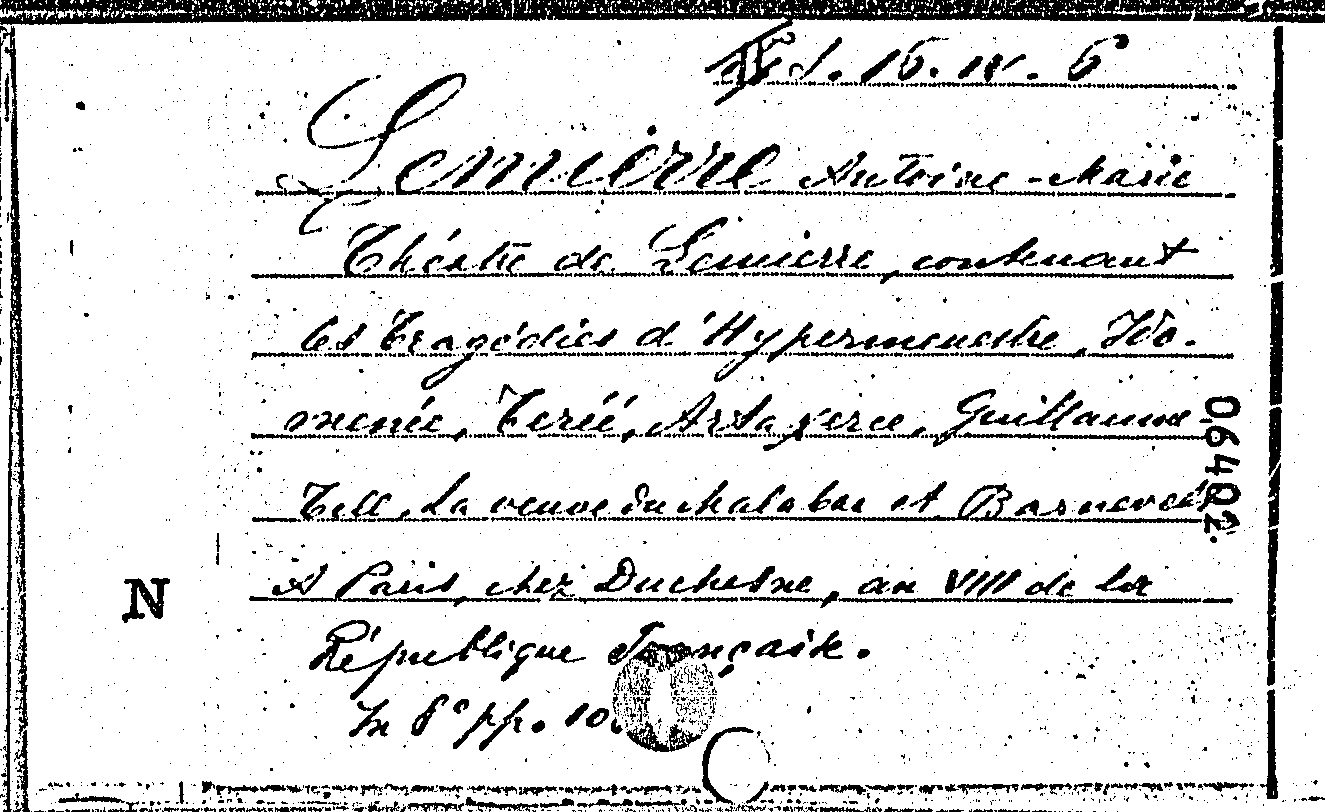 S. 16. IV. 6
Lemierre Antoine-Marie
Théatre de Lemierre, contenant
les Tragédies d'Hypermenestre, Ido-
menée, Terée, Artaxerce, Guillaume
Tell, La veuve du Malabar et Barnevelt
A Paris, chez Duchesne, an VIII de la
République Française.
In 8° pp.
06402
N